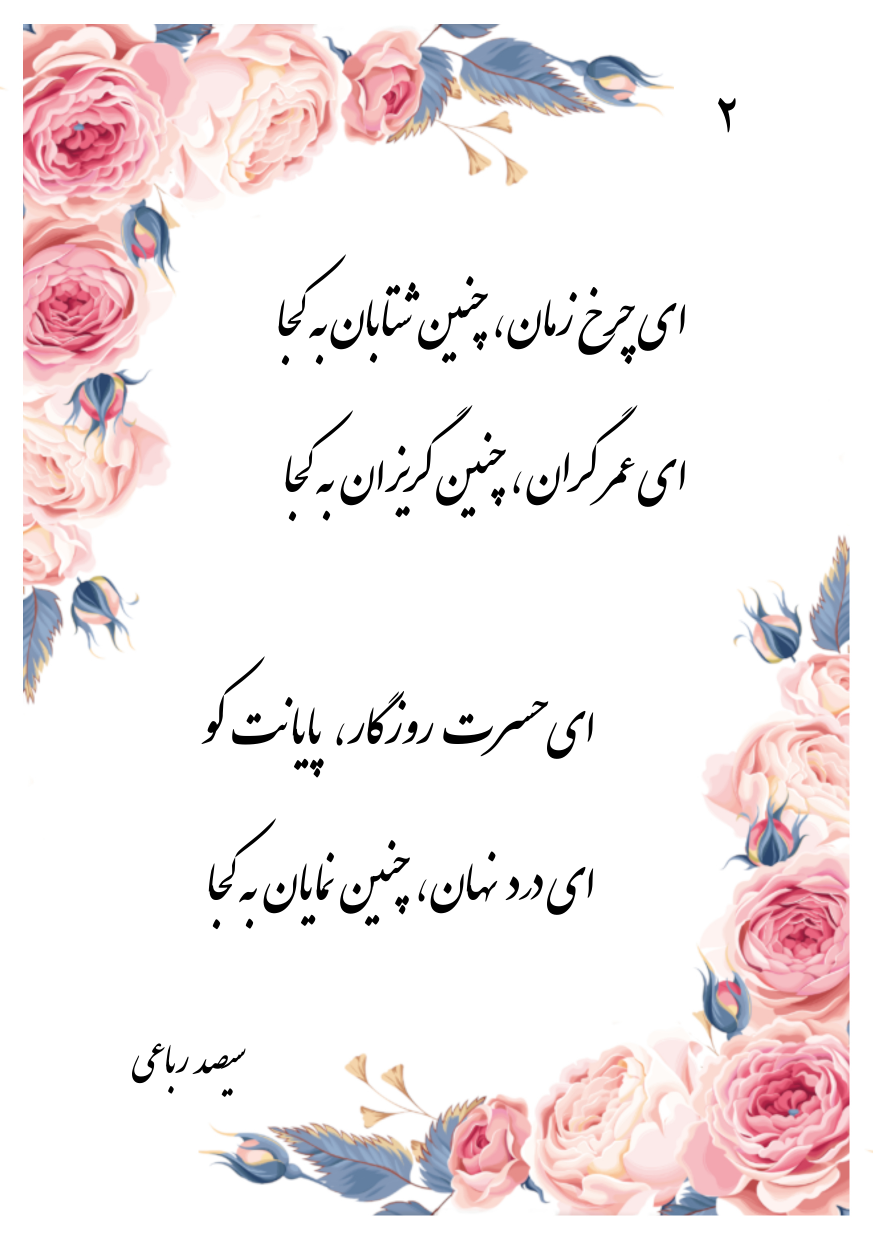 ۲
ای چرخ زمان، چنین شتابان به کجا
ای عمر گران، چنین گریزان به کجا
ای حسرت روزگار، پایانت کو
ای درد نهان، چنین نمایان به کجا
سیصد رباعی